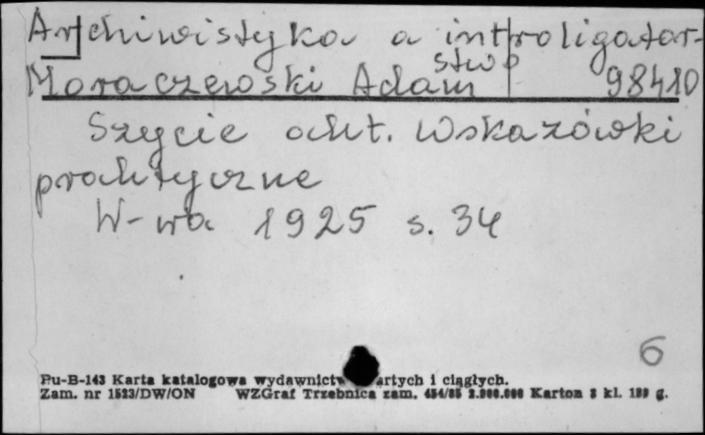 Archiwistyka a introligator-
stwo
Moraczewski Adam 98410
Szycie akt. Wskazówki
praktyczne
W-wa 1925 s. 34
6
Pu-B-143 Karta katalogowa wydawnictw zwartych i ciągłych.
Zam. nr 1523/DW/ON WZGraf Trzebnica zam. 454/85 2.000.000 Karton 3 kl. 180 g.